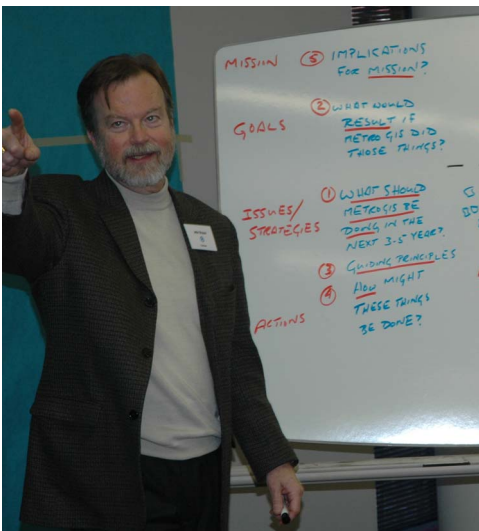 MISSION
⑤ IMPLICATIONS
FOR MISSION?
GOALS
② WHAT WOULD
RESULT IF
METRO GIS DID
THOSE THINGS?
ISSUES/
STRATEGIES
① WHAT SHOULD
METROGIS BE
DOING IN THE
NEXT 3-5 YEAR?
③ GUIDING PRINCIPLES
ACTIONS
④ HOW MIGHT
THESE THINGS
BE DONE?